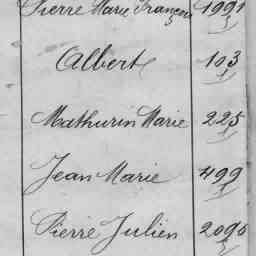 Pierre Marie François 1991
Albert 103
Mathurin Marie 225
Jean Marie 499
Pierre Julien 2095